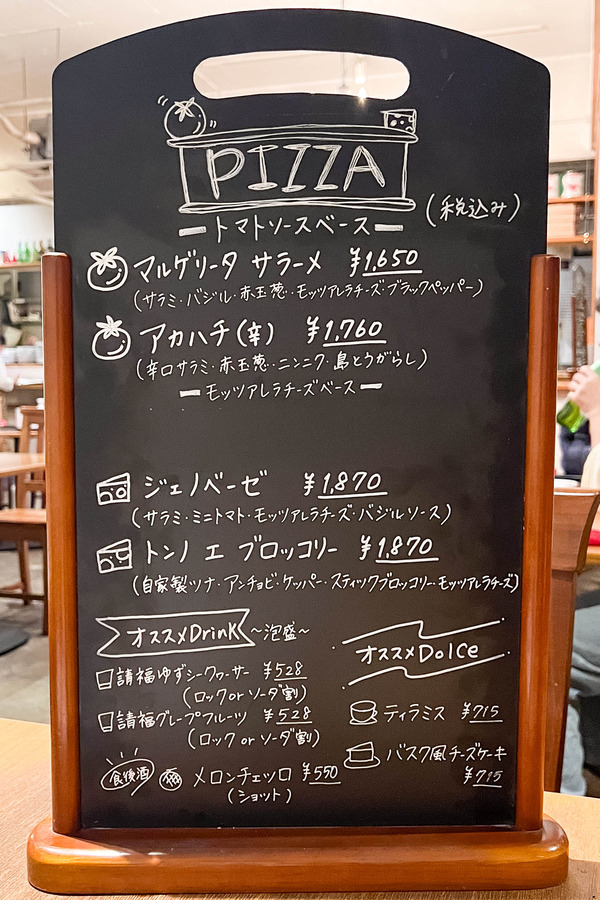 PIZZA
(税込み)
トマトソースベース
マルゲリータ サラーメ ¥1,650
(サラミ・バジル・赤玉葱・モッツアレラチーズ・ブラックペッパー)
アカハチ(辛) ¥1,760
(辛口サラミ・赤玉葱・ニンニク・島とうがらし)
モッツアレラチーズベース
ジェノベーゼ ¥1,870
(サラミ・ミニトマト・モッツアレラチーズ・バジルソース)
トンノ エ ブロッコリー ¥1,870
(自家製ツナ・アンチョビ・ケッパー・スティックブロッコリー・モッツアレラチーズ)
オススメDrinK 〜泡盛〜
請福ゆずシークヮーサー ¥528
(ロックorソーダ割)
請福グレープフルーツ ¥528
(ロックorソーダ割)
食後酒 メロンチェッロ ¥550
(ショット)
オススメDolce
ティラミス ¥715
バスク風チーズケーキ
¥715